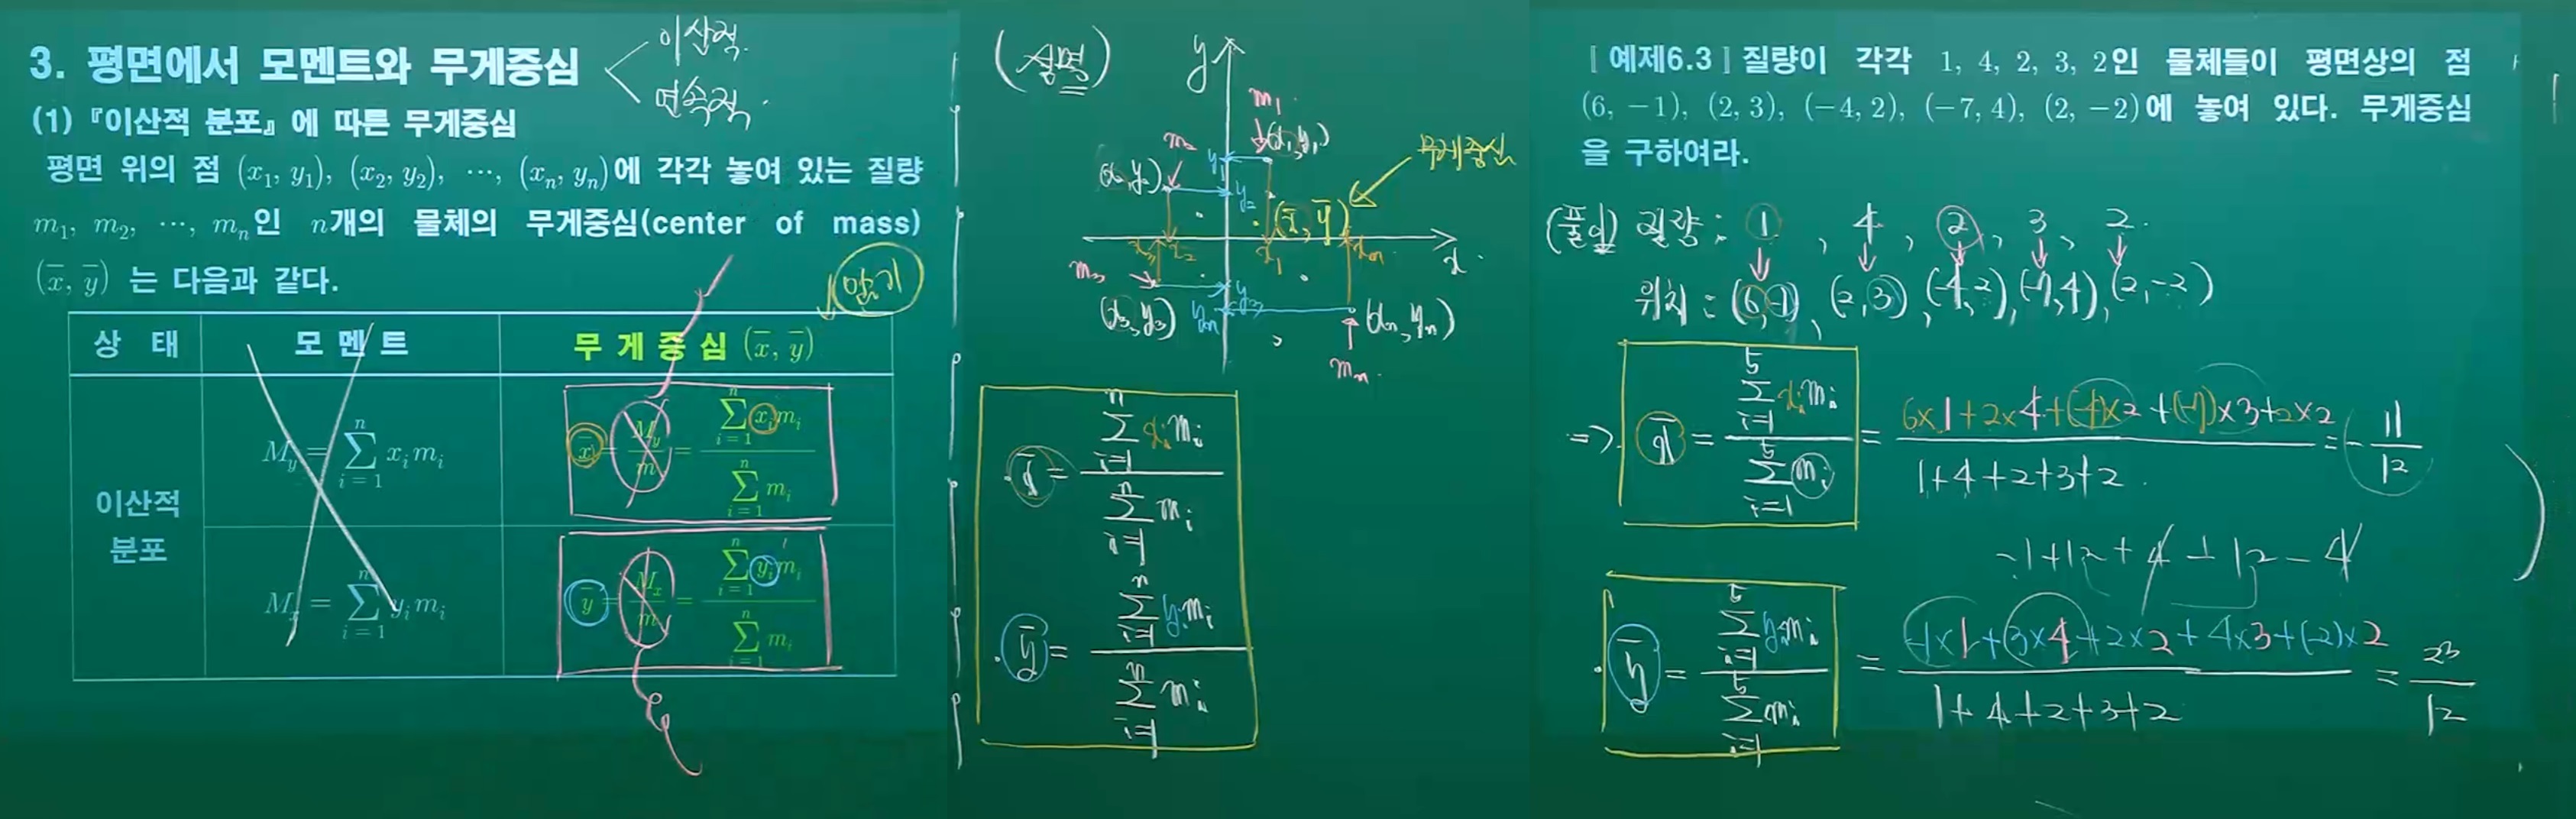 3. 평면에서 모멘트와 무게중심
이산적.
연속적.
(1) 『이산적 분포』에 따른 무게중심
평면 위의 점 (x₁, y₁), (x₂, y₂), ⋯, (xₙ, yₙ)에 각각 놓여 있는 질량
m₁, m₂, ⋯, mₙ인 n개의 물체의 무게중심(center of mass)
(x̅, y̅) 는 다음과 같다.
암기
상 태 모 멘 트 무 게 중 심 (x̅, y̅)
이산적
분포
M_y = ∑_{i=1}^{n} x_i m_i
x̅ = M_y/m = ∑_{i=1}^{n} x_i m_i / ∑_{i=1}^{n} m_i
M_x = ∑_{i=1}^{n} y_i m_i
y̅ = M_x/m = ∑_{i=1}^{n} y_i m_i / ∑_{i=1}^{n} m_i
(설명)
y
m₁
(x₁, y₁)
무게중심
m₂
(x₂, y₂)
y₁
y₂
(x̅, y̅)
x₃ x₂ x₁ xₙ
x
m₃
(x₃, y₃)
y₃
yₙ
(xₙ, yₙ)
mₙ
x̅ = ∑_{i=1}^{n} x_i m_i / ∑_{i=1}^{n} m_i
y̅ = ∑_{i=1}^{n} y_i m_i / ∑_{i=1}^{n} m_i
[예제6.3] 질량이 각각 1, 4, 2, 3, 2인 물체들이 평면상의 점
(6, −1), (2, 3), (−4, 2), (−7, 4), (2, −2)에 놓여 있다. 무게중심
을 구하여라.
(풀이) 질량 : 1, 4, 2, 3, 2
위치 : (6, -1), (2, 3), (-4, 2), (-7, 4), (2, -2)
⇒ x̅ = ∑_{i=1}^{5} x_i m_i / ∑_{i=1}^{5} m_i = 6×1+2×4+(-4)×2+(-7)×3+2×2 / 1+4+2+3+2 = -11/12
-1+12+4+12-4
y̅ = ∑_{i=1}^{5} y_i m_i / ∑_{i=1}^{5} m_i = -1×1+3×4+2×2+4×3+(-2)×2 / 1+4+2+3+2 = 23/12